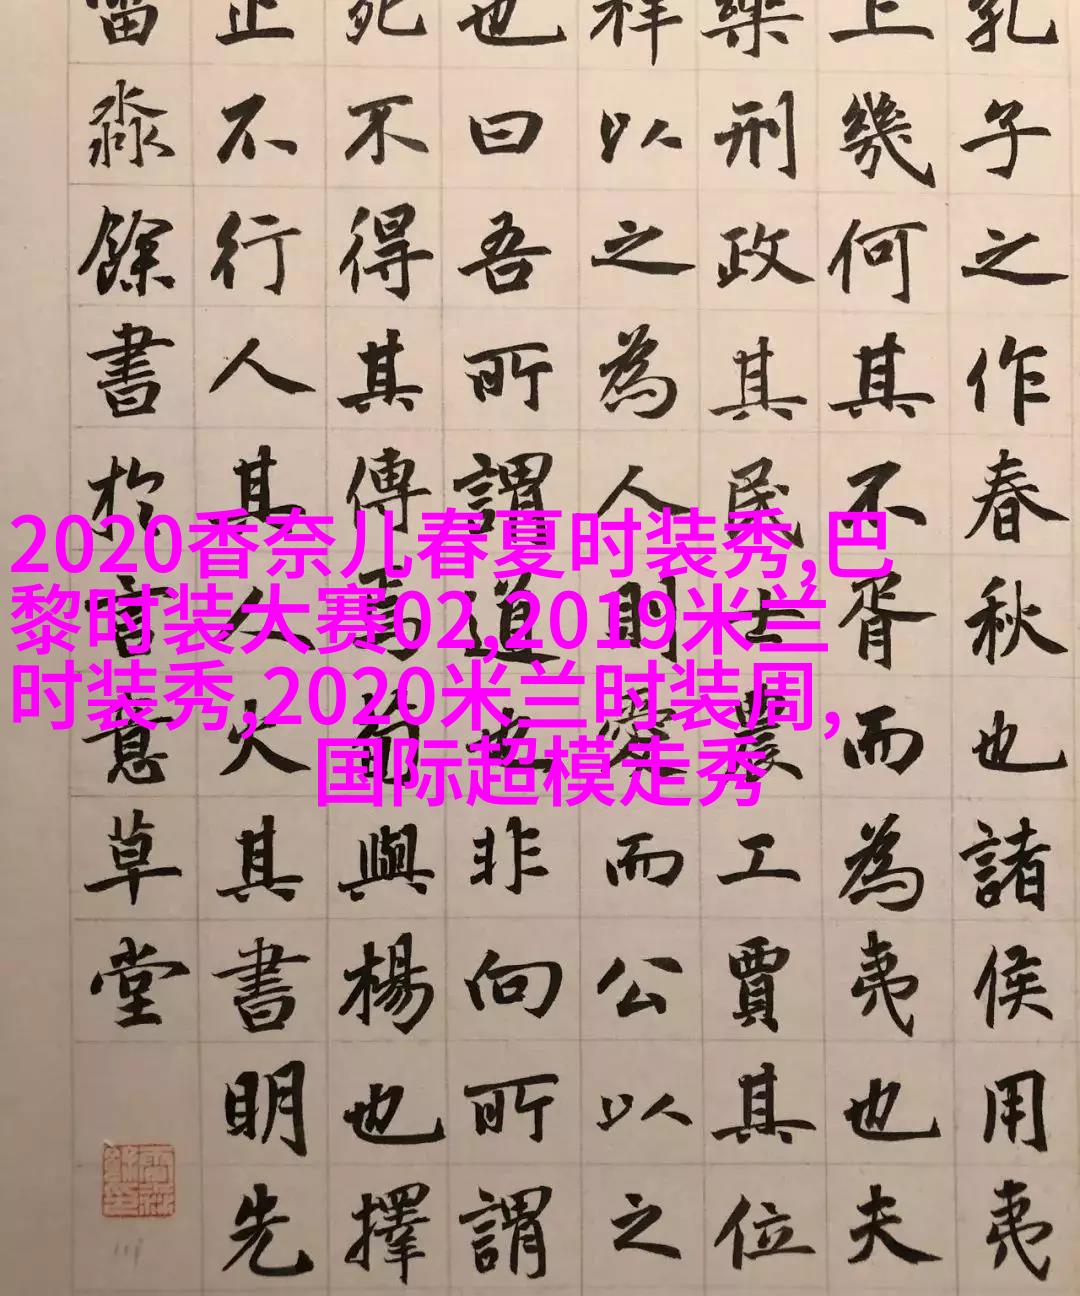 孔子之作春秋也諸侯用夷
上幾何其不胥而為夷也夫
樂刑政其民士農工賈其位
祥以之為人則愛而公以之
也曰吾所謂道也非向所謂
死不得其傳焉荀與楊也擇
止不行人其人火其書明先
淼餘書於言意草堂
2020香奈儿春夏时装秀,巴
黎时装大赛02,2019米兰
时装秀,2020米兰时装周,
国际超模走秀